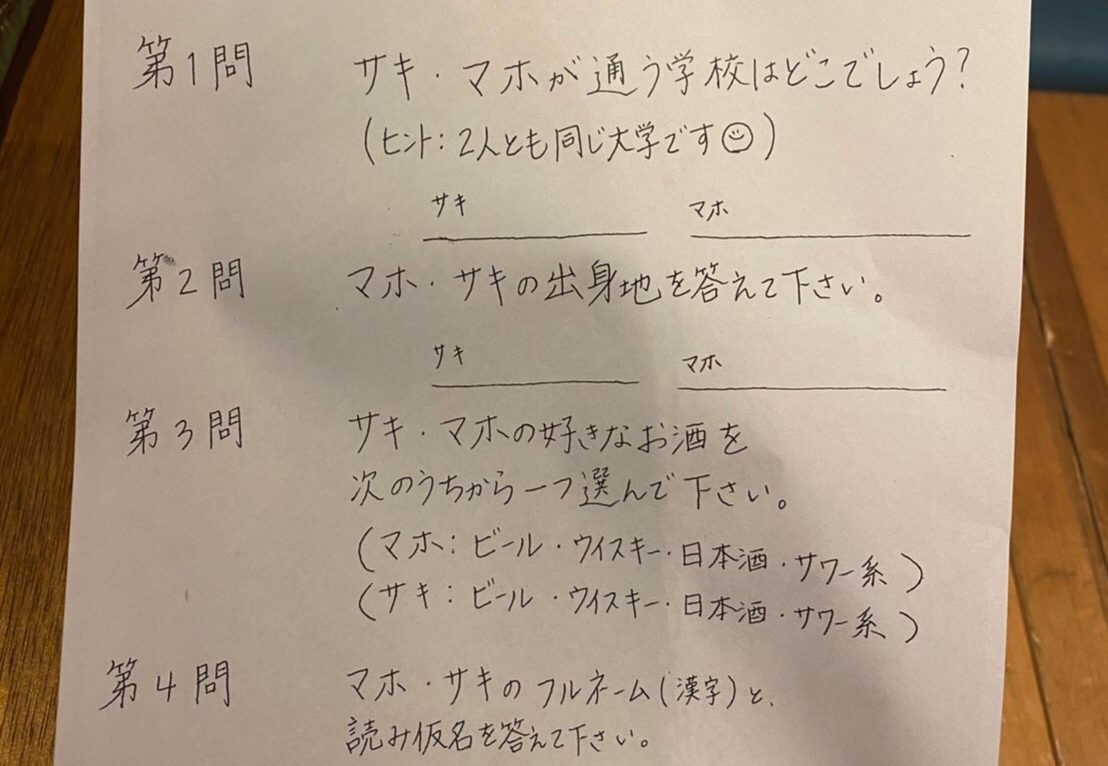 第1問 サキ・マホが通う学校はどこでしょう?
(ヒント:2人とも同じ大学です☺)
サキ マホ
第2問 マホ・サキの出身地を答えて下さい。
サキ マホ
第3問 サキ・マホの好きなお酒を
次のうちから一つ選んで下さい。
(マホ:ビール・ウイスキー・日本酒・サワー系)
(サキ:ビール・ウイスキー・日本酒・サワー系)
第4問 マホ・サキのフルネーム(漢字)と、
読み仮名を答えて下さい。